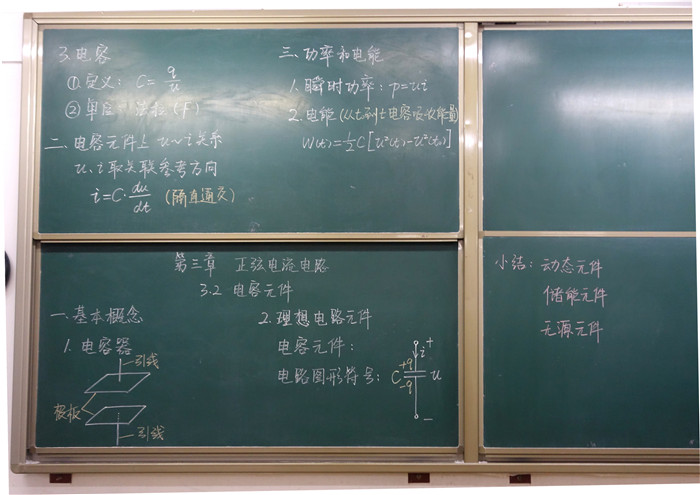 第三章 正弦电流电路
3.2 电容元件
一、基本概念
1. 电容器
引线
极板
引线
2. 理想电路元件
电容元件:
电路图形符号:
+
i
+q
C
u
-q
-
3. 电容
① 定义: C = q/u
② 单位: 法拉(F)
二、电容元件上 u~i 关系
u、i 取关联参考方向
i=C·du/dt (隔直通交)
三、功率和电能
1. 瞬时功率: p=ui
2. 电能 (从t₀到t电容吸收能量)
W(t)=½C[u²(t)-u²(t₀)]
小结: 动态元件
储能元件
无源元件